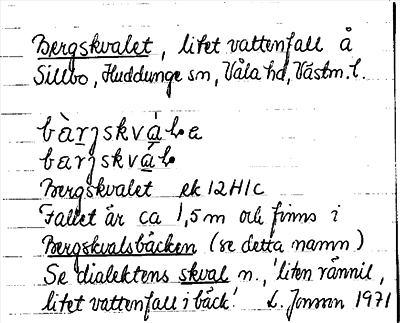 Bergskvalet, litet vattenfall å
Sillbo, Huddunge sn, Våla hd, Västm. l.
bàrjskvála
barjskvál
Bergskvalet ek 12H1c
Fallet är ca 1,5 m och finns i
Bergskvalsbäcken (se detta namn)
Se dialektens skval n., 'liten rännil,
litet vattenfall i bäck'. L. Jonson 1971